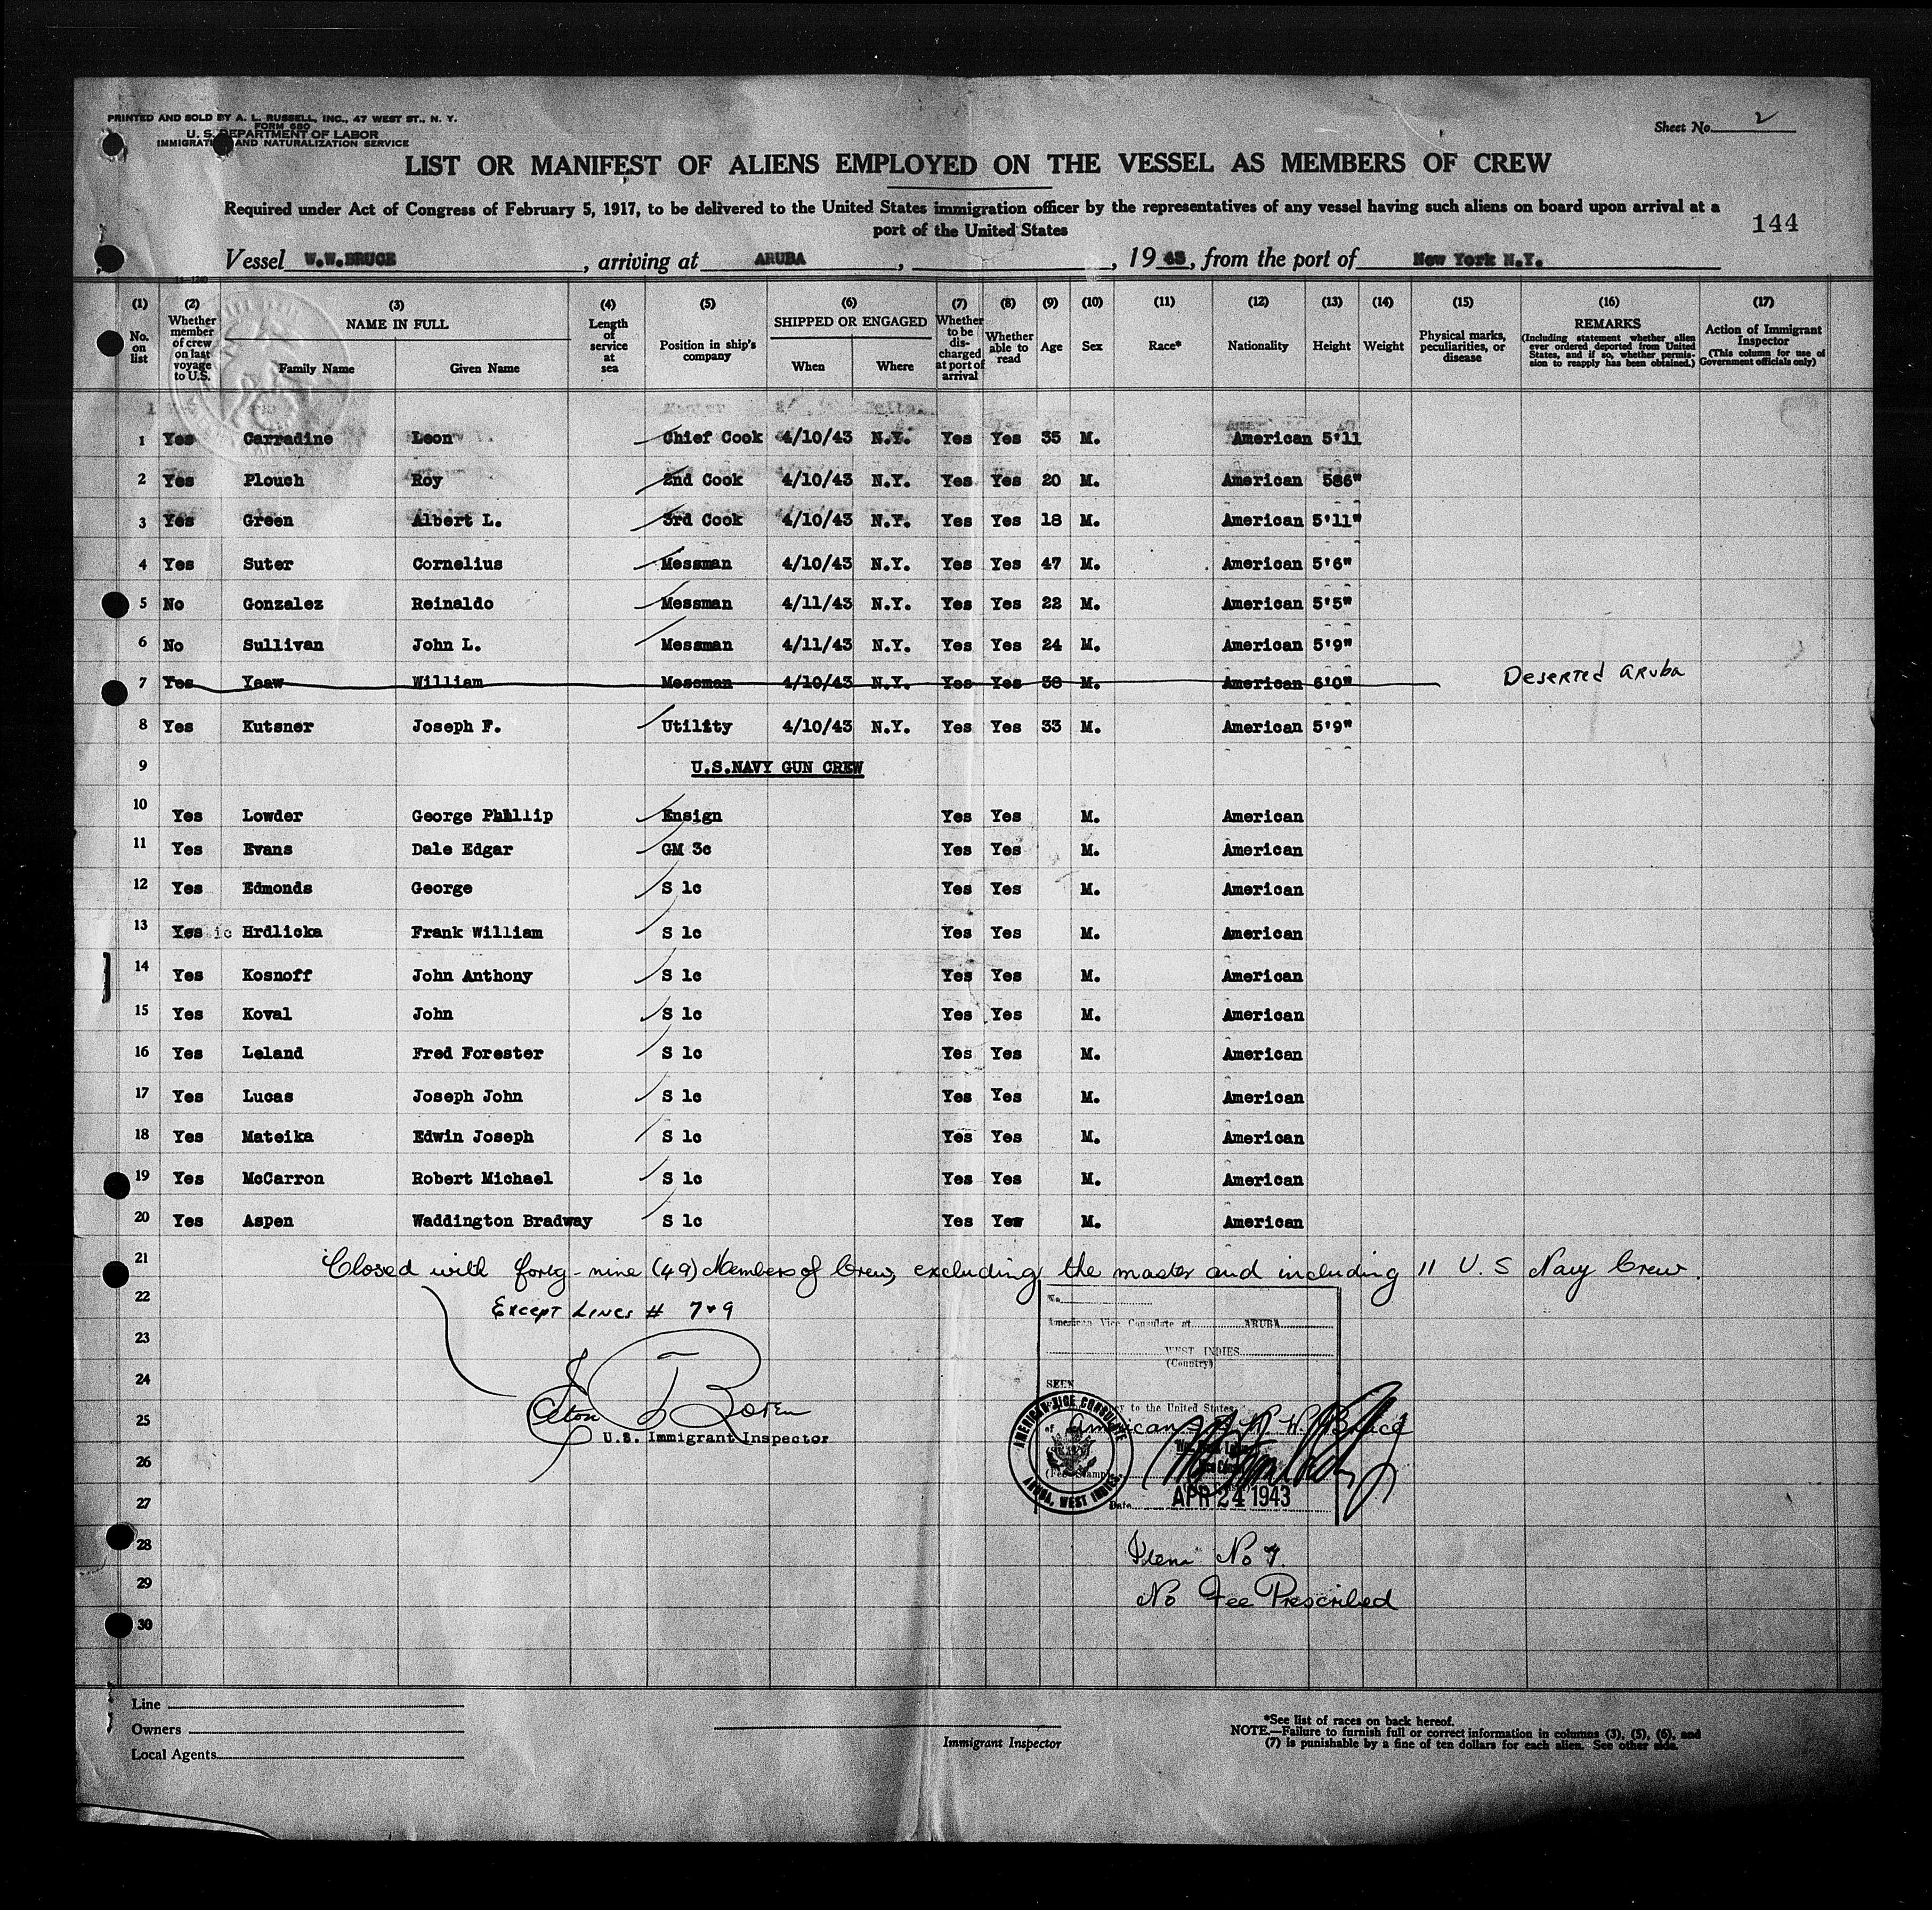 PRINTED AND SOLD BY A. L. RUSSELL, INC., 47 WEST ST., N. Y.
FORM 680
U. S. DEPARTMENT OF LABOR
IMMIGRATION AND NATURALIZATION SERVICE
Sheet No. 2
LIST OR MANIFEST OF ALIENS EMPLOYED ON THE VESSEL AS MEMBERS OF CREW
Required under Act of Congress of February 5, 1917, to be delivered to the United States immigration officer by the representatives of any vessel having such aliens on board upon arrival at a
port of the United States
144
Vessel W.W.BRUCE, arriving at ARUBA, , 19 43, from the port of New York N.Y.
(1) (2) (3) (4) (5) (6) (7) (8) (9) (10) (11) (12) (13) (14) (15) (16) (17)
No. on list
Whether member of crew on last voyage to U.S.
NAME IN FULL
Family Name Given Name
Length of service at sea
Position in ship's company
SHIPPED OR ENGAGED
When Where
Whether to be discharged at port of arrival
Whether able to read
Age Sex Race* Nationality Height Weight
Physical marks, peculiarities, or disease
REMARKS
(Including statement whether alien ever ordered deported from United States, and if so, whether permission to reapply has been obtained.)
Action of Immigrant Inspector
(This column for use of Government officials only)
1 Yes Carradine Leon Chief Cook 4/10/43 N.Y. Yes Yes 35 M. American 5'11
2 Yes Plouch Roy 2nd Cook 4/10/43 N.Y. Yes Yes 20 M. American 586"
3 Yes Green Albert L. 3rd Cook 4/10/43 N.Y. Yes Yes 18 M. American 5'11"
4 Yes Suter Cornelius Messman 4/10/43 N.Y. Yes Yes 47 M. American 5'6"
5 No Gonzalez Reinaldo Messman 4/11/43 N.Y. Yes Yes 22 M. American 5'5"
6 No Sullivan John L. Messman 4/11/43 N.Y. Yes Yes 24 M. American 5'9"
7 Yes Yeaw William Messman 4/10/43 N.Y. Yes Yes 38 M. American 6'0" Deserted Aruba
8 Yes Kutsner Joseph F. Utility 4/10/43 N.Y. Yes Yes 33 M. American 5'9"
9 U.S.NAVY GUN CREW
10 Yes Lowder George Phillip Ensign Yes Yes M. American
11 Yes Evans Dale Edgar GM 3c Yes Yes M. American
12 Yes Edmonds George S 1c Yes Yes M. American
13 Yes Hrdlicka Frank William S 1c Yes Yes M. American
14 Yes Kosnoff John Anthony S 1c Yes Yes M. American
15 Yes Koval John S 1c Yes Yes M. American
16 Yes Leland Fred Forester S 1c Yes Yes M. American
17 Yes Lucas Joseph John S 1c Yes Yes M. American
18 Yes Mateika Edwin Joseph S 1c Yes Yes M. American
19 Yes McCarron Robert Michael S 1c Yes Yes M. American
20 Yes Aspen Waddington Bradway S 1c Yes Yew M. American
21 Closed with forty-nine (49) Members of Crew, excluding the master and including 11 U.S Navy Crew.
22 Except Lines # 7+9
No.
American Vice Consulate at ARUBA
23
WEST INDIES
(Country)
24
SEEN
25
to the United States
American W. W. Bruce
U.S. Immigrant Inspector
AMERICAN VICE CONSULATE
ARUBA, WEST INDIES.
26
27
Date APR 24 1943
28 Item No 7.
29 No Fee Prescribed
30
Line
Owners
Local Agents
Immigrant Inspector
*See list of races on back hereof.
NOTE.—Failure to furnish full or correct information in columns (3), (5), (6), and
(7) is punishable by a fine of ten dollars for each alien. See other side.